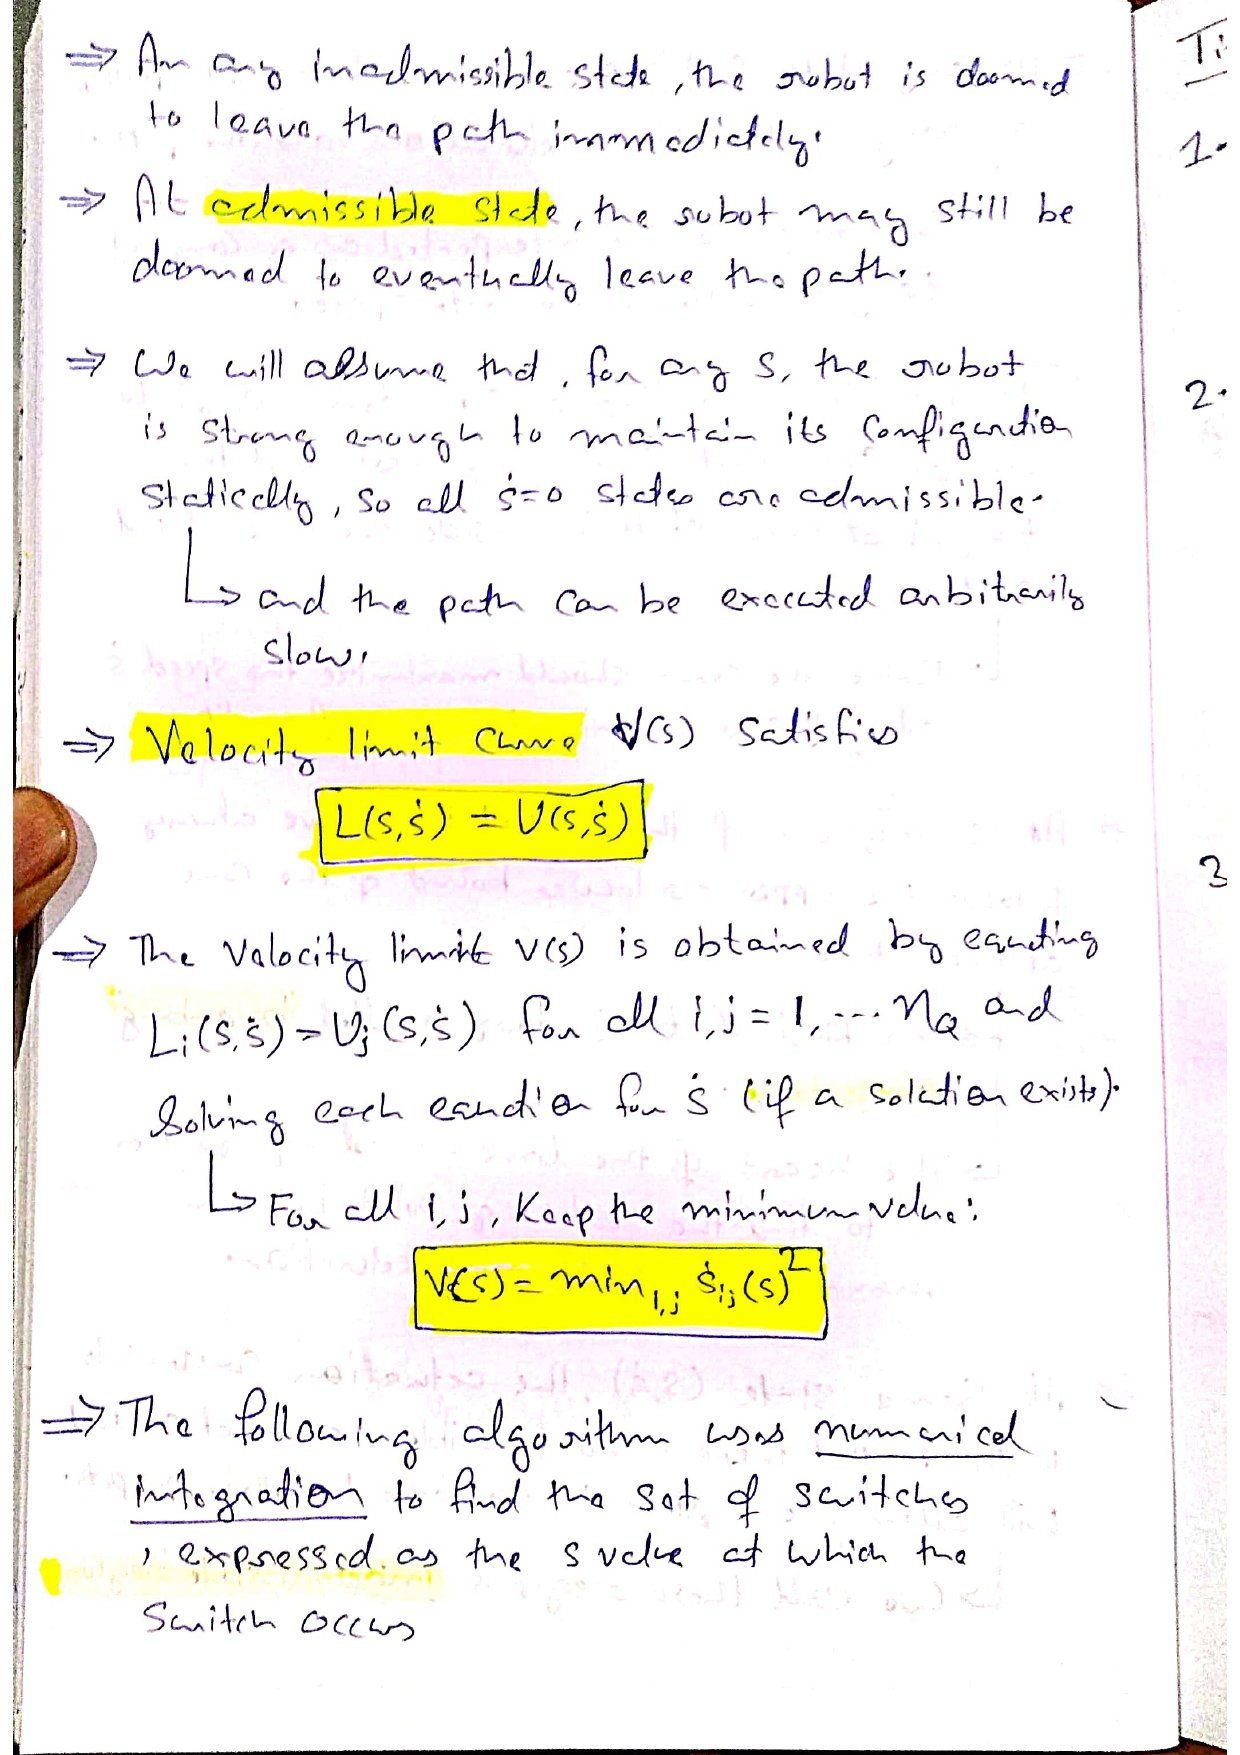 ⇒ An any inadmissible state, the robot is doomed
to leave the path immediately.
⇒ At admissible state, the robot may still be
doomed to eventually leave the path.
⇒ We will assume that, for any s, the robot
is strong enough to maintain its configuration
statically, so all ṡ=0 states are admissible.
↳ and the path can be executed arbitrarily
slow.
⇒ Velocity limit curve V(s) satisfies
L(s,ṡ) = U(s,ṡ)
⇒ The Velocity limit V(s) is obtained by equating
Lᵢ(s,ṡ) = Uⱼ(s,ṡ) for all i,j = 1, ... nₐ and
Solving each equation for ṡ (if a solution exists).
↳ For all i,j, Keep the minimum value:
V(s) = min i,j ṡij(s)²
⇒ The following algorithm uses numerical
integration to find the set of switches
, expressed as the s value at which the
Switch occurs
Ti
1.
2.
3